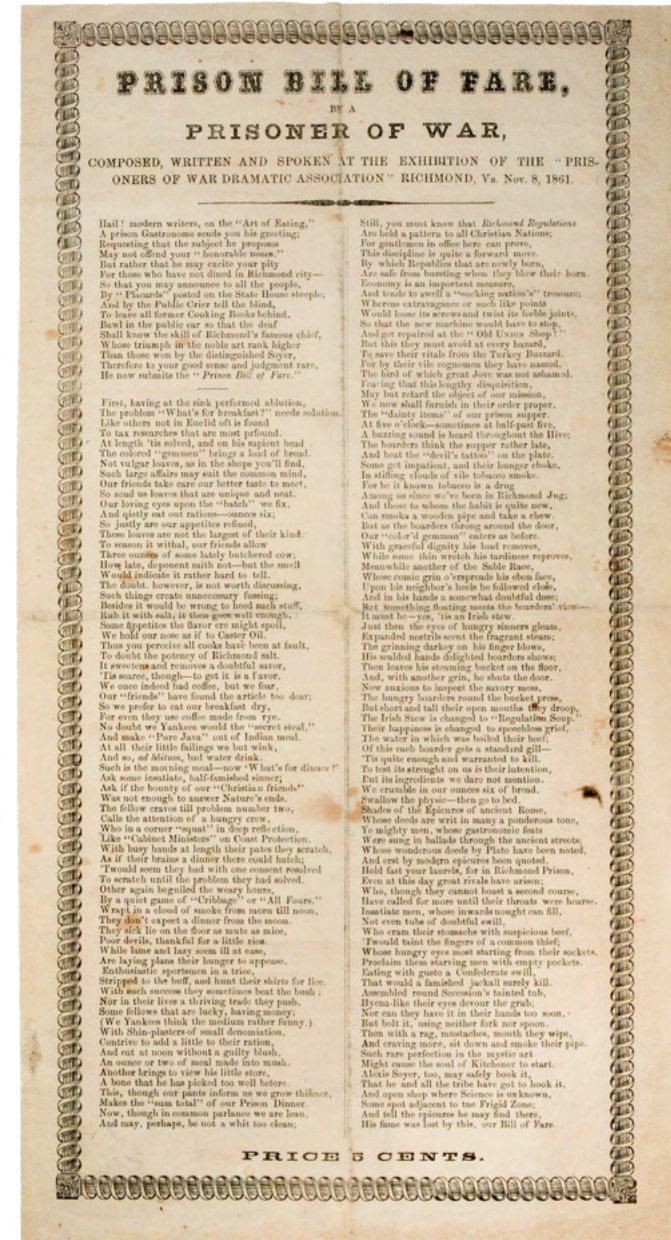 PRISON BILL OF FARE,
BY A
PRISONER OF WAR,
COMPOSED, WRITTEN AND SPOKEN AT THE EXHIBITION OF THE "PRIS-
ONERS OF WAR DRAMATIC ASSOCIATION" RICHMOND, Va. Nov. 8, 1861.
Hail! modern writers, on the "Art of Eating,"
A prison Gastronome sends you his greeting;
Requesting that the subject he proposes
May not offend your "honorable noses."
But rather that he may excite your pity
For those who have not dined in Richmond city—
So that you may announce to all the people,
By "Placards" posted on the State House steeple;
And by the Public Crier tell the blind,
To leave all former Cooking Books behind.
Bawl in the public ear so that the deaf
Shall know the skill of Richmond's famous chief,
Whose triumph in the noble art rank higher
Than those won by the distinguished Soyer,
Therefore to your good sense and judgment rare,
He now submits the "Prison Bill of Fare."
First, having at the sink performed ablution,
The problem "What's for breakfast?" needs solution.
Like others not in Euclid oft is found
To tax researches that are most prfound.
At length 'tis solved, and on his sapient head
The colored "gemmen" brings a load of bread.
Not vulgar loaves, as in the shops you'll find,
Such large affairs may suit the common mind,
Our friends take care our better taste to meet,
So send us loaves that are unique and neat.
Our loving eyes upon the "batch" we fix,
And qietly eat out rations—ounces six;
So justly are our appetites refined,
These loaves are not the largest of their kind.
To season it withal, our friends allow
Three ounces of some lately butchered cow;
How late, deponent saith not—but the smell
Would indicate it rather hard to tell.
The doubt. however, is not worth discussing,
Such things create unnecessary fussing;
Besides it would be wrong to heed such stuff,
Rub it with salt, it then goes well enough.
Some appetites the flavor ere might spoil,
We hold our nose as if to Castor Oil.
Thus you perceive all cooks have been at fault,
To doubt the potency of Richmond salt.
It sweetens and removes a doubtful savor,
'Tis scarce, though—to get it is a favor.
We once indeed had coffee, but we fear,
Our "friends" have found the article too dear;
So we prefer to eat our breakfast dry,
For even they use coffee made from rye.
No doubt we Yankees would the "secret steal,"
And make "Pure Java" out of Indian meal.
At all their little failings we but wink,
And so, ad libitum, bad water drink.
Such is the morning meal—now 'What's for dinner?'
Ask some insatiate, half-famished sinner;
Ask if the bounty of our "Christian friends"
Was not enough to answer Nature's ends.
The fellow craves till problem number two,
Calls the attention of a hungry crew,
Who in a corner "squat" in deep reflection,
Like "Cabinet Ministers" on Coast Protection.
With busy hands at length their pates they scratch,
As if their brains a dinner there could hatch;
'Twould seem they had with one consent resolved
To scratch until the problem they had solved.
Other again beguiled the weary hours,
By a quiet game of "Cribbage" or "All Fours."
Wrapt in a cloud of smoke from morn till noon,
They don't expect a dinner from the moon.
They sick lie on the floor as mute as mice,
Poor devils, thankful for a little rice.
While lame and lazy seem ill at ease,
Are laying plans their hunger to appease.
Enthusiastic sportsmen in a trice,
Stripped to the buff, and hunt their shirts for lice.
With such success they sometimes beat the bush;
Nor in their lives a thriving trade they push.
Some fellows that are lucky, having money;
(We Yankees think the medium rather funny.)
With Shin-plasters of small denomiation,
Contrive to add a little to their ration,
And eat at noon without a guilty blush,
An ounce or two of meal made into mush.
Another brings to view his little store,
A bone that he has picked too well before.
This, though our pants inform us we grow thinner,
Makes the "sum total" of our Prison Dinner.
Now, though in common parlance we are lean,
And may, perhaps, be not a whit too clean;
Still, you must know that Richmond Regulations
Are held a pattern to all Christian Nations;
For gentlemen in office here can prove,
This discipline is quite a forward move.
By which Republics that are newly born,
Are safe from bursting when they blow their horn.
Economy is an important measure,
And tends to swell a "sucking nation's" treasure;
Whereas extravagance or such like points
Would loose its screws and twist its feeble joints,
So that the new machine would have to stop,
And get repaired at the "Old Union Shop!"
But this they must avoid at every hazard,
To save their vitals from the Turkey Buzzard.
For by their vile cognomen they have named,
The bird of which great Jove was not ashamed.
Fearing that this lengthy disquisition,
May but retard the object of our mission,
We now shall furnish in their order proper,
The "dainty items" of our prison supper.
At five o'clock—sometimes at half-past five,
A buzzing sound is heard throughout the Hive;
The boarders think the supper rather late,
And beat the "devil's tattoo" on the plate.
Some get impatient, and their hunger choke,
In stifling clouds of vile tobacco smoke.
For be it known tobacco is a drug
Among us since we've been in Richmond Jug;
And those to whom the habit is quite new,
Can smoke a wooden pipe and take a chew.
But as the boarders throng around the door,
Our "color'd gemman" enters as before.
With graceful dignity his load removes,
While some thin wretch his tardiness reproves,
Meanwhile another of the Sable Race,
Whose comic grin o'erspreads his ebon face,
Upon his neighbor's heels he followed close,
And in his hands a somewhat doubtful dose;
But something floating meets the boarders' view—
It must be—yes, 'tis an Irish stew.
Just then the eyes of hungry sinners gleam,
Expanded nostrils scent the fragrant steam;
The grinning darkey on his finger blows,
His scalded hands delighted boarders shows;
Then leaves his steaming bucket on the floor,
And, with another grin, he shuts the door.
Now anxious to inspect the savory mess,
The hungry boarders round the bucket press,
But short and tall their open mouths they droop,
The Irish Stew is changed to "Regulation Soup."
Their happiness is changed to speechless grief,
The water in which was boiled their beef;
Of this each boarder gets a standard gill—
'Tis quite enough and warranted to kill.
To test its strenght on us is their intention,
But its ingredients we dare not mention.
We crumble in our ounces six of bread.
Swallow the physic—then go to bed.
Shades of the Epicures of ancient Rome,
Whose deeds are writ in many a ponderous tone,
Ye mighty men, whose gastronomic feats
Were sung in ballads through the ancient streets;
Whose wonderous deeds by Plato have been noted,
And erst by modern epicures been quoted.
Hold fast your laurels, for in Richmond Prison,
Even at this day great rivals have arisen;
Who, though they cannot boast a second course,
Have called for more until their throats were hoarse.
Insatiate men, whose inwards nought can fill,
Not even tubs of doubtful swill,
Who cram their stomachs with suspicious beef,
'Twould taint the fingers of a common thief;
Whose hungry eyes most starting from their sockets,
Proclaim them starving men with empty pockets.
Eating with gusto a Confederate swill,
That would a famished jackall surely kill.
Assembled round Secession's tainted tub,
Hyena-like their eyes devour the grub;
Nor can they have it in their hands too soon,
But bolt it, using neither fork nor spoon.
Then with a rag, mustaches, mouth they wipe,
And craving more, sit down and smoke their pipe.
Such rare perfection in the mystic art
Might cause the soul of Kitchener to start.
Alexis Soyer, too, may safely book it,
That he and all the tribe have got to hook it,
And open shop where Science is unknown,
Some spot adjacent to tne Frigid Zone;
And tell the epicures he may find there,
His fame was lost by this, our Bill of Fare.
PRICE 5 CENTS.